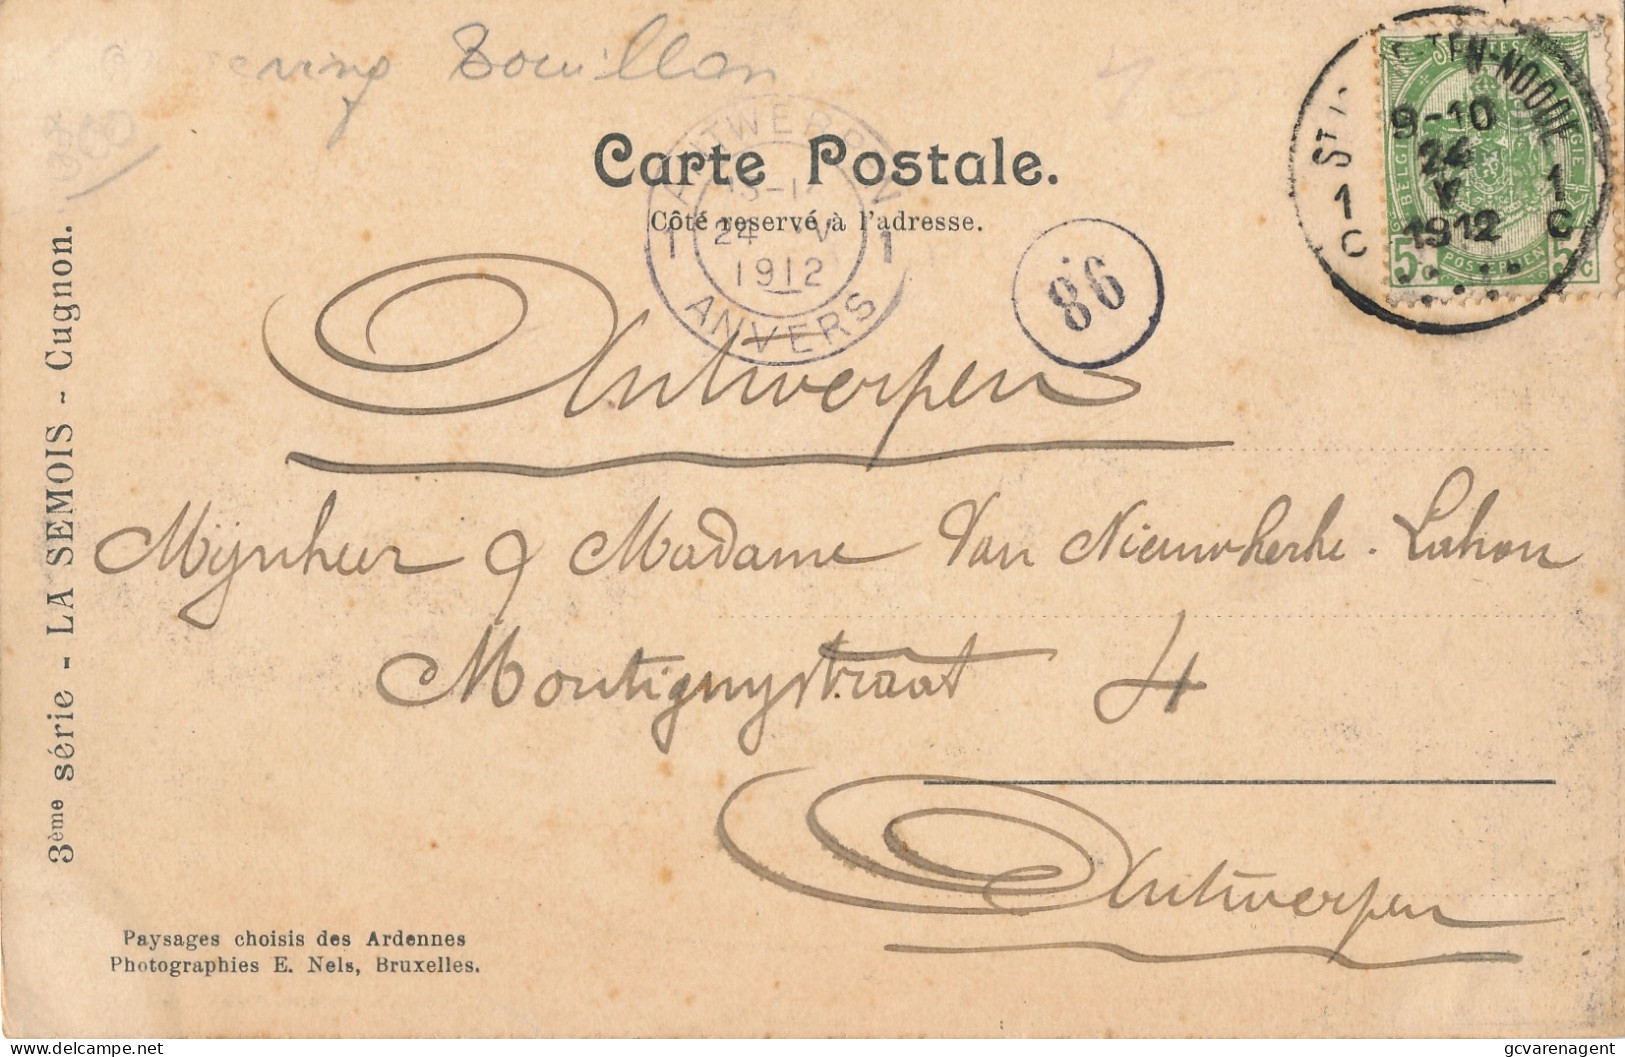 Bouillon
Carte Postale.
Côté reservé à l'adresse.
ANTWERPEN
1 24 V 1
1912
ANVERS
86
ST TEN-NOODE
9-10
24
V
1 1912 1
C C
BELGIQUE BELGIE
5c POSTERIJEN 5c
Antwerpen
Mijnheer & Madame Van Nieuwkerke. Lahon
Montignystraat 4
Antwerpen
3ème série - LA SEMOIS - Cugnon.
Paysages choisis des Ardennes
Photographies E. Nels, Bruxelles.
delcampe.net
gcvarenagent